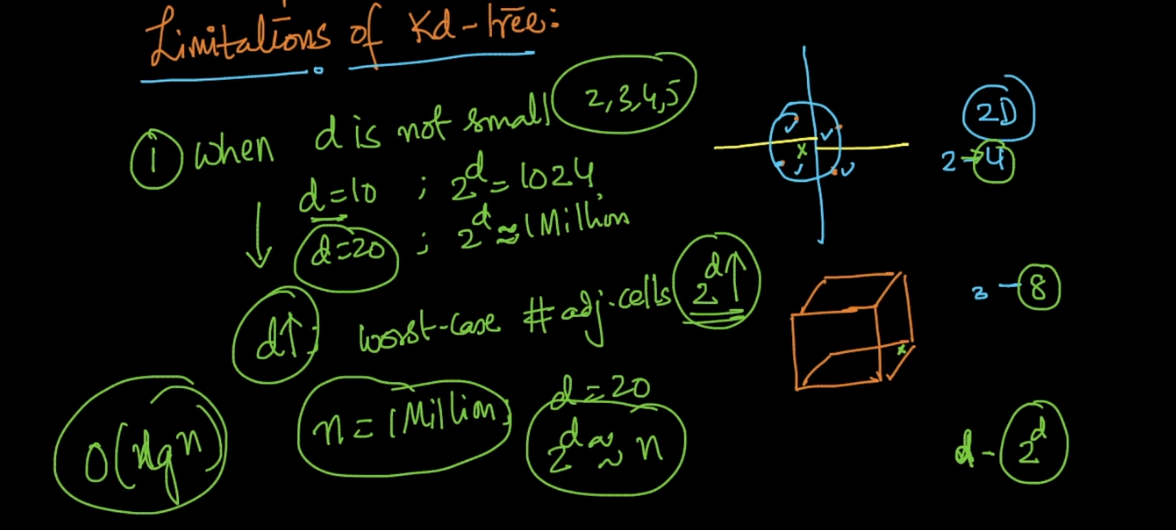 Limitations of Kd-tree:
① when d is not small 2,3,4,5
d=10 ; 2^d = 1024
d=20 ; 2^d ≈ 1 Million
d↑; worst-case # adj. cells 2^d↑
n = 1 Million; d=20
2^d ≈ n
2D
2 → 4
3 - 8
d - 2^d